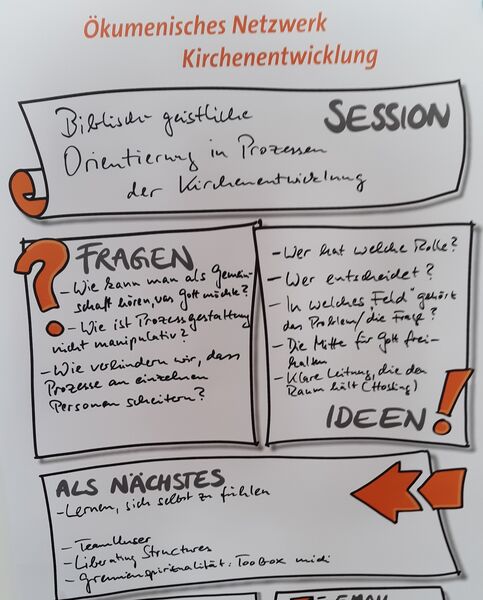 Ökumenisches Netzwerk
Kirchenentwicklung
SESSION
Biblisch-geistliche
Orientierung in Prozessen
der Kirchenentwicklung
FRAGEN
- Wie kann man als Gemein-
schaft hören, was Gott möchte?
- Wie ist Prozessgestaltung
nicht manipulativ?
- Wie verhindern wir, dass
Prozesse an einzelnen
Personen scheitern?
- Wer hat welche Rolle?
- Wer entscheidet?
- In welches "Feld" gehört
das Problem/die Frage?
- Die Mitte für Gott frei-
halten
- Klare Leitung, die den
Raum hält (Hosting)
IDEEN
ALS NÄCHSTES
- Lernen, sich selbst zu fühlen
- Liberating Structures
- Gremienspiritualität: Toolbox midi
E-MAIL